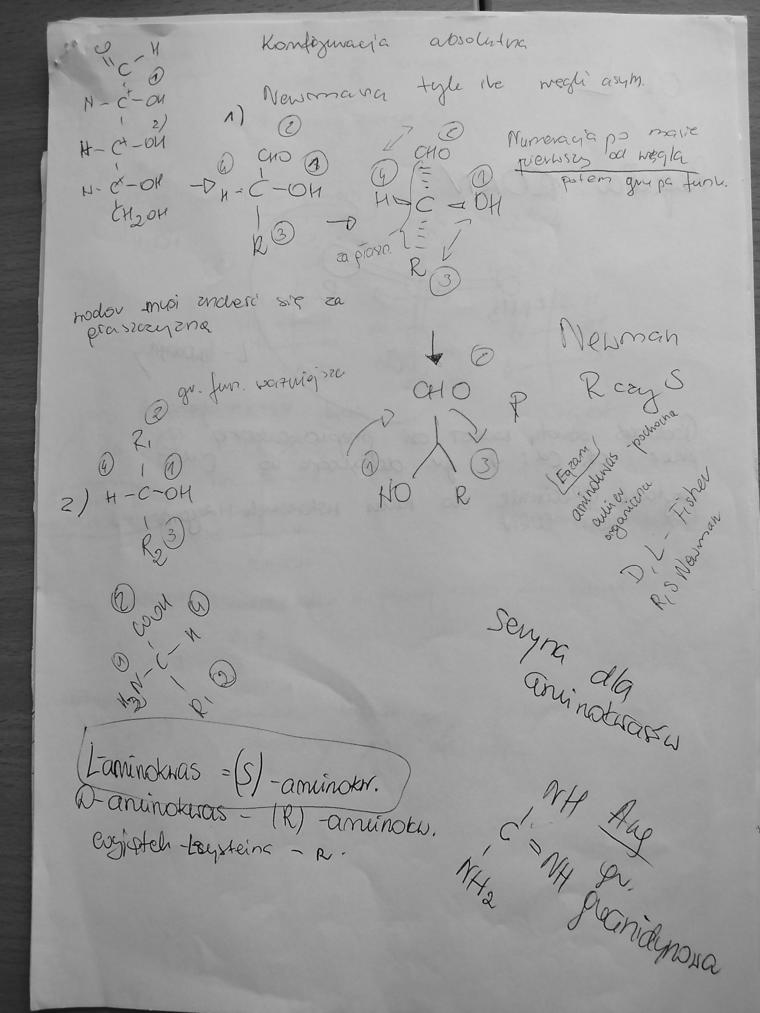 Konfiguracja absolutna
Newmana tyle ile węgli asym.
O
C H
①
N - C* - OH
2)
H - C* - OH
N - C* - OH
CH2OH
1)
②
CHO ①
④ H - C - OH
R ③
②
CHO
④ ①
H C OH
za płasz.
R ③
Numeracja po masie
pierwszy od węgla
potem grupa funk.
wodór musi znaleźć się za
płaszczyzną
Newman
R czy S
②
CHO
① ③
HO R
gr. fun. ważniejsza
②
R1
④ ①
2) H - C - OH
R2 ③
Egzam
aminokwas - pochodna
organiczna
D, L - Fisher
R, S Newman
② COOH ④ H
① H2N C
R1 ②
seryna dla
aminokwasów
L-aminokwas = (S) - aminokw.
D-aminokwas - (R) - aminokw.
wyjątek - cysteina - R.
NH Arg
C = NH gr.
NH2 guanidynowa